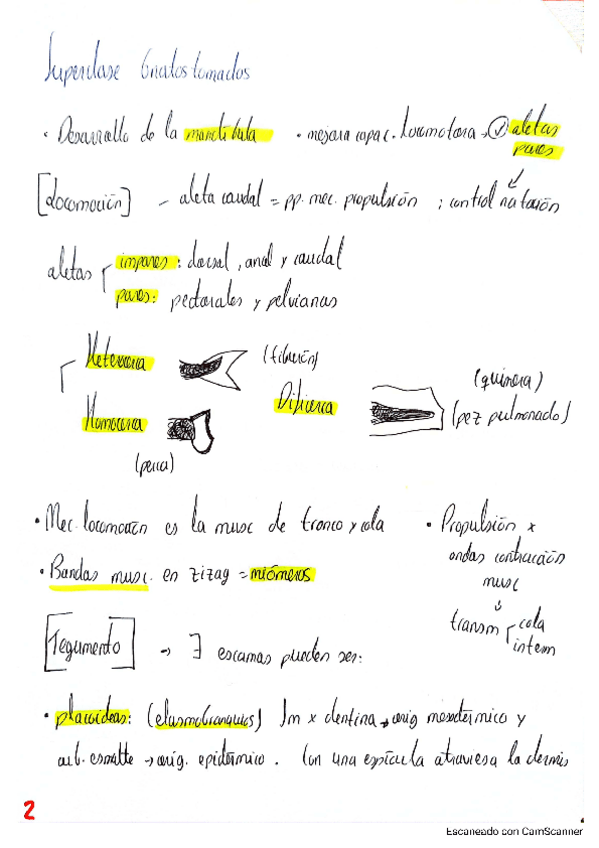 Superclase Gnatostomados
· Desarrollo de la mandíbula · mejora capac. locomotora → aletas
pares
[Locomoción] - aleta caudal = pp. mec. propulsión ; control natación
aletas impares: dorsal, anal y caudal
pares: pectorales y pelvianas
Heterocerca (tiburón)
Dificerca (quimera)
(pez pulmonado)
Homocerca
(perca)
· Mec. locomoción es la musc de tronco y cola
· Bandas musc. en zizag = miómeros
· Propulsión x
ondas contracción
musc
↓
transm cola
intem
[Tegumento] → ∃ escamas pueden ser:
· placoideas: (elasmobranquios) Fm x dentina → orig mesodérmico y
cub. esmalte → orig. epidérmico. Con una espícula atraviesa la dermis
2
Escaneado con CamScanner